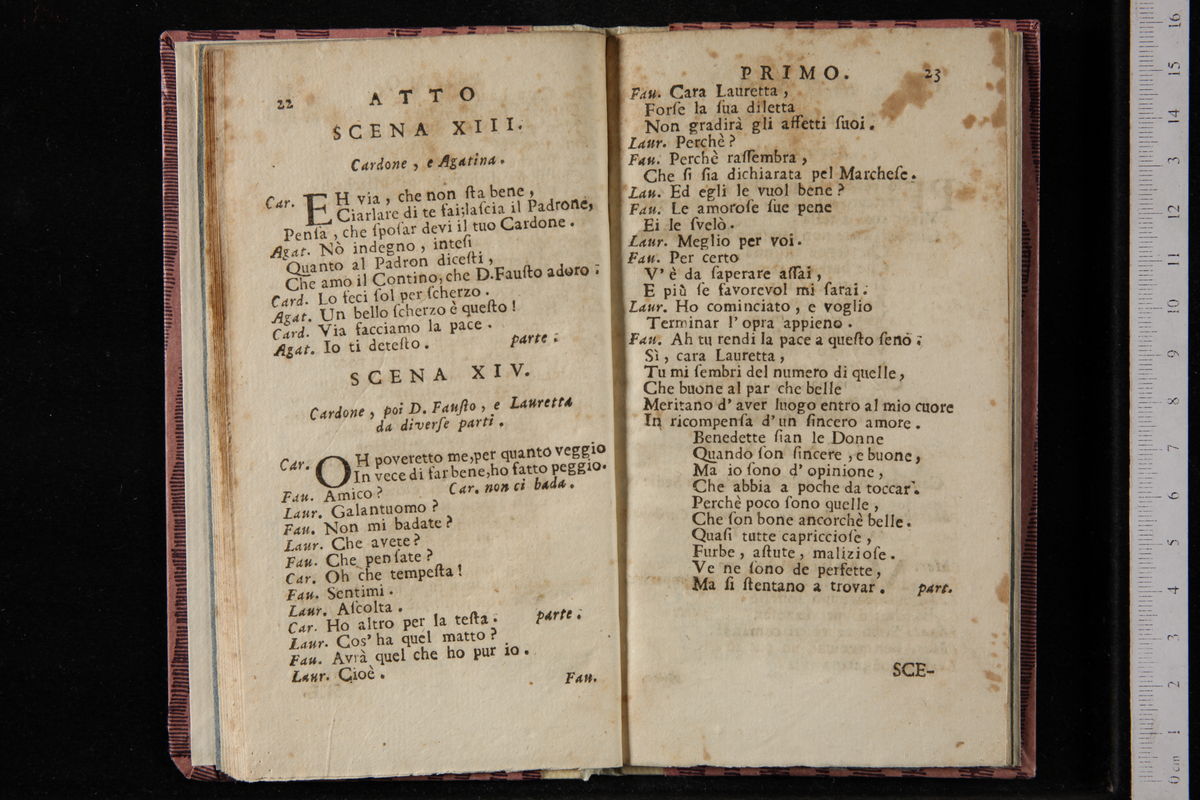 22 ATTO
SCENA XIII.
Cardone, e Agatina.
Car. EH via, che non ſta bene,
Ciarlare di te fai; laſcia il Padrone,
Penſa, che ſpoſar devi il tuo Cardone.
Agat. Nò indegno, inteſi
Quanto al Padron diceſti,
Che amo il Contino, che D. Fauſto adoro.
Card. Lo feci ſol per ſcherzo.
Agat. Un bello ſcherzo è queſto!
Card. Via facciamo la pace.
Agat. Io ti deteſto. parte.
SCENA XIV.
Cardone, poi D. Fauſto, e Lauretta
da diverſe parti.
Car. OH poveretto me, per quanto veggio
In vece di far bene, ho fatto peggio.
Fau. Amico? Car. non ci bada.
Laur. Galantuomo?
Fau. Non mi badate?
Laur. Che avete?
Fau. Che penſate?
Car. Oh che tempeſta!
Fau. Sentimi.
Laur. Aſcolta.
Car. Ho altro per la teſta. parte.
Laur. Cos' ha quel matto?
Fau. Avrà quel che ho pur io.
Laur. Cioè.
Fau.
PRIMO. 23
Fau. Cara Lauretta,
Forſe la ſua diletta
Non gradirà gli affetti ſuoi.
Laur. Perchè?
Fau. Perchè raſſembra,
Che ſi ſia dichiarata pel Marcheſe.
Lau. Ed egli le vuol bene?
Fau. Le amoroſe ſue pene
Ei le ſvelò.
Laur. Meglio per voi.
Fau. Per certo
V' è da ſaperare aſſai,
E più ſe favorevol mi ſarai.
Laur. Ho cominciato, e voglio
Terminar l' opra appieno.
Fau. Ah tu rendi la pace a queſto ſeno;
Sì, cara Lauretta,
Tu mi ſembri del numero di quelle,
Che buone al par che belle
Meritano d' aver luogo entro al mio cuore
In ricompenſa d' un ſincero amore.
Benedette ſian le Donne
Quando ſon ſincere, e buone,
Ma io ſono d' opinione,
Che abbia a poche da toccar.
Perchè poco ſono quelle,
Che ſon bone ancorchè belle.
Quaſi tutte capriccioſe,
Furbe, aſtute, malizioſe.
Ve ne ſono de perfette,
Ma ſi ſtentano a trovar. part.
SCE-
0 cm 1 2 3 4 5 6 7 8 9 10 11 12 13 14 15 16